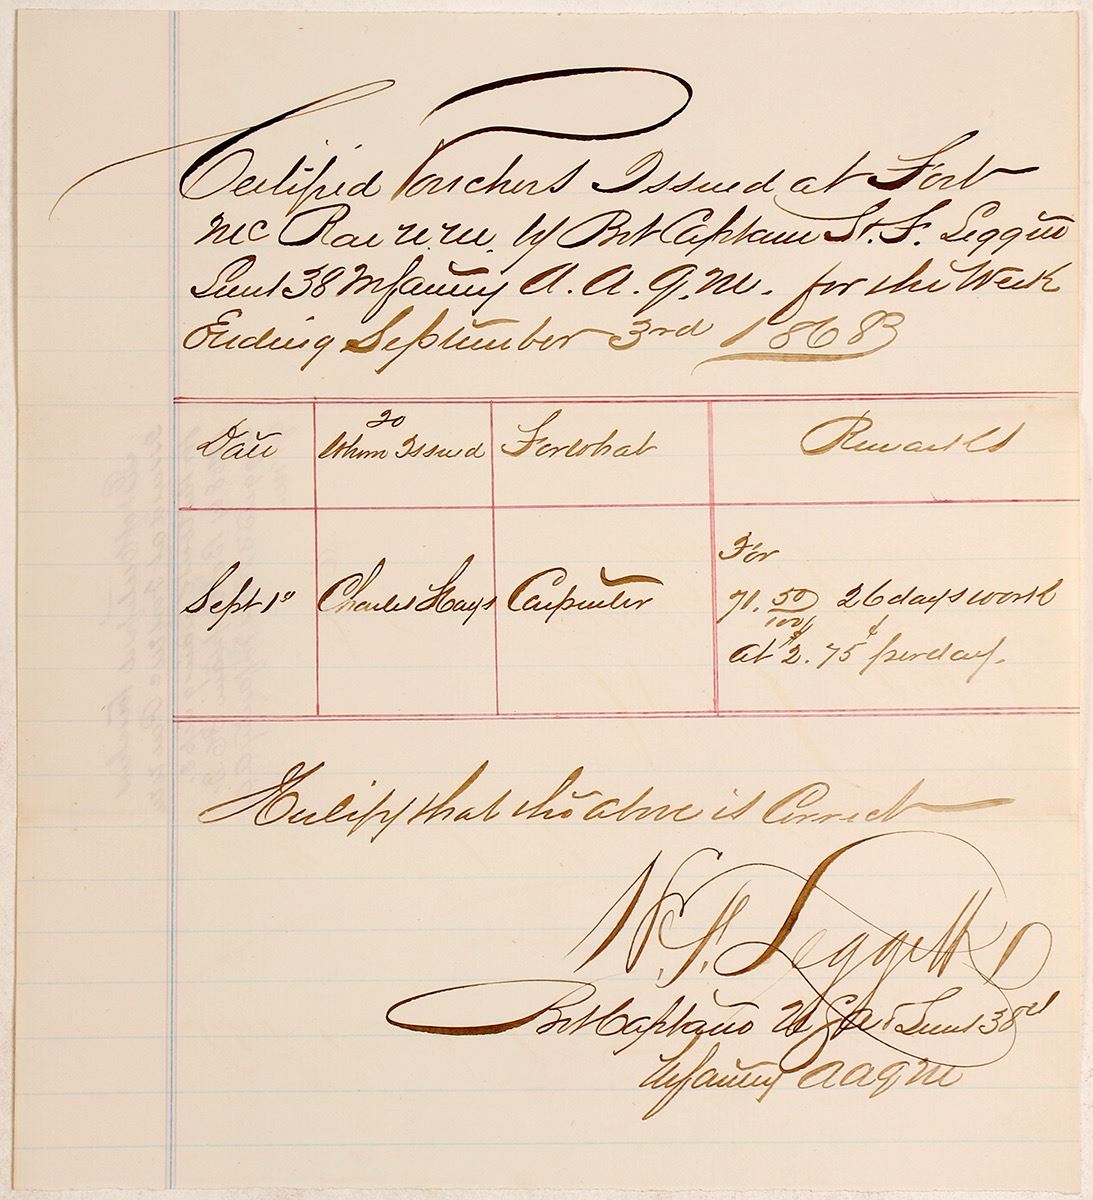 Certified Vouchers Issued at Fort
McRae N.M. by Bvt Captain H. F. Leggett
Lieut 38 Infantry A. A. Q. M. for the Week
Ending September 3rd 1868
Date
To Whom Issued
For What
Remarks
Sept 1st
Charles Hays
Carpenter
For
71. 50/100 26 days work
at $2.75¢ per day.
I Certify that the above is Correct
H. F. Leggett
Bvt Captain U S A & Lieut 38th
Infantry A A Q M